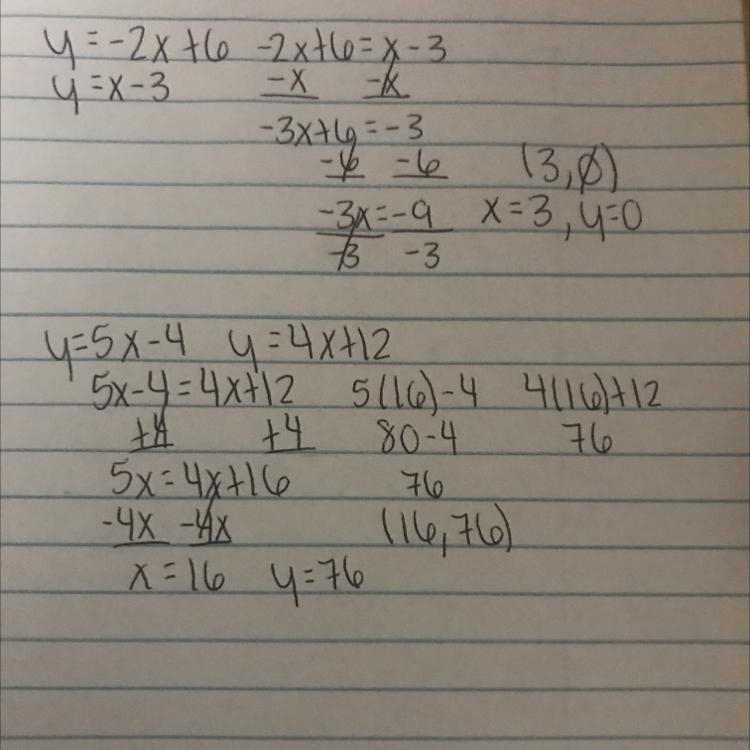 y = -2x + 6   -2x + 6 = x - 3
y = x - 3   -x   -x
-3x + 6 = -3
-6   -6   (3, 0)
-3x = -9   x = 3, y = 0
-3   -3
y = 5x - 4   y = 4x + 12
5x - 4 = 4x + 12   5(16) - 4   4(16) + 12
+4   +4   80 - 4   76
5x = 4x + 16   76
-4x   -4x   (16, 76)
x = 16   y = 76